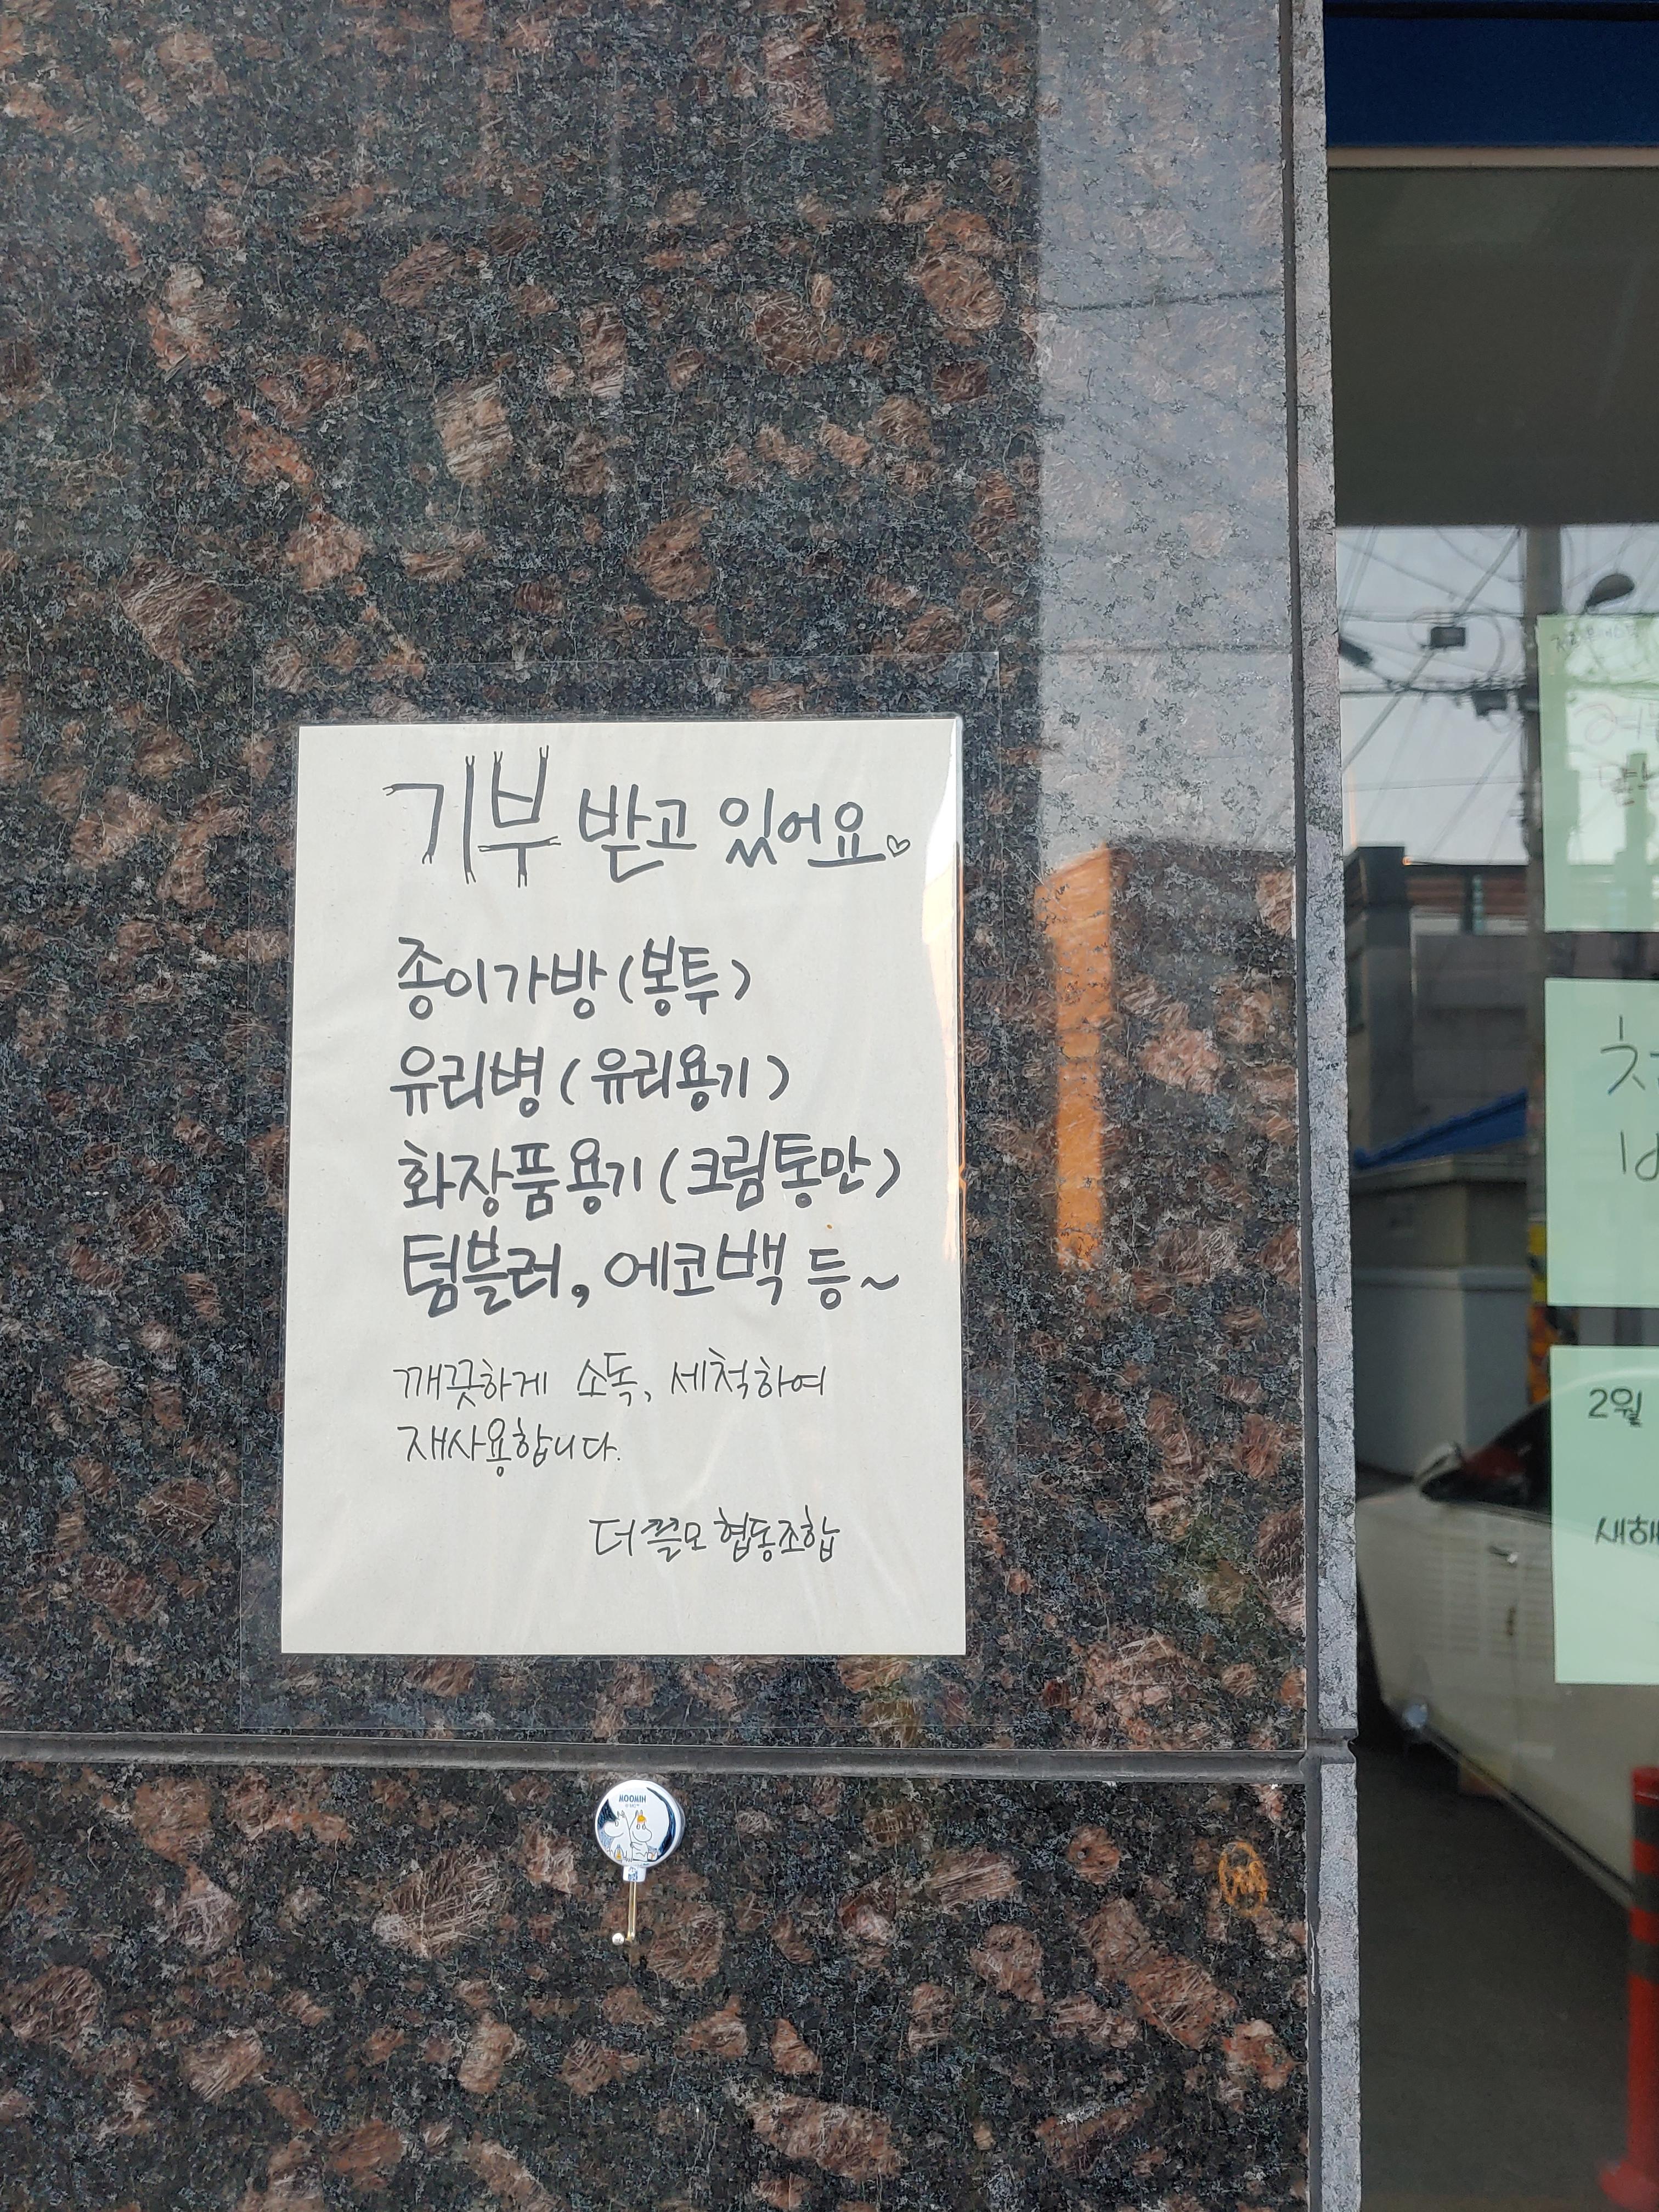 기부 받고 있어요♡
종이가방(봉투)
유리병(유리용기)
화장품용기(크림통만)
텀블러, 에코백 등~
깨끗하게 소독, 세척하여
재사용합니다.
더쓸모협동조합
MOOMIN
2월
새해